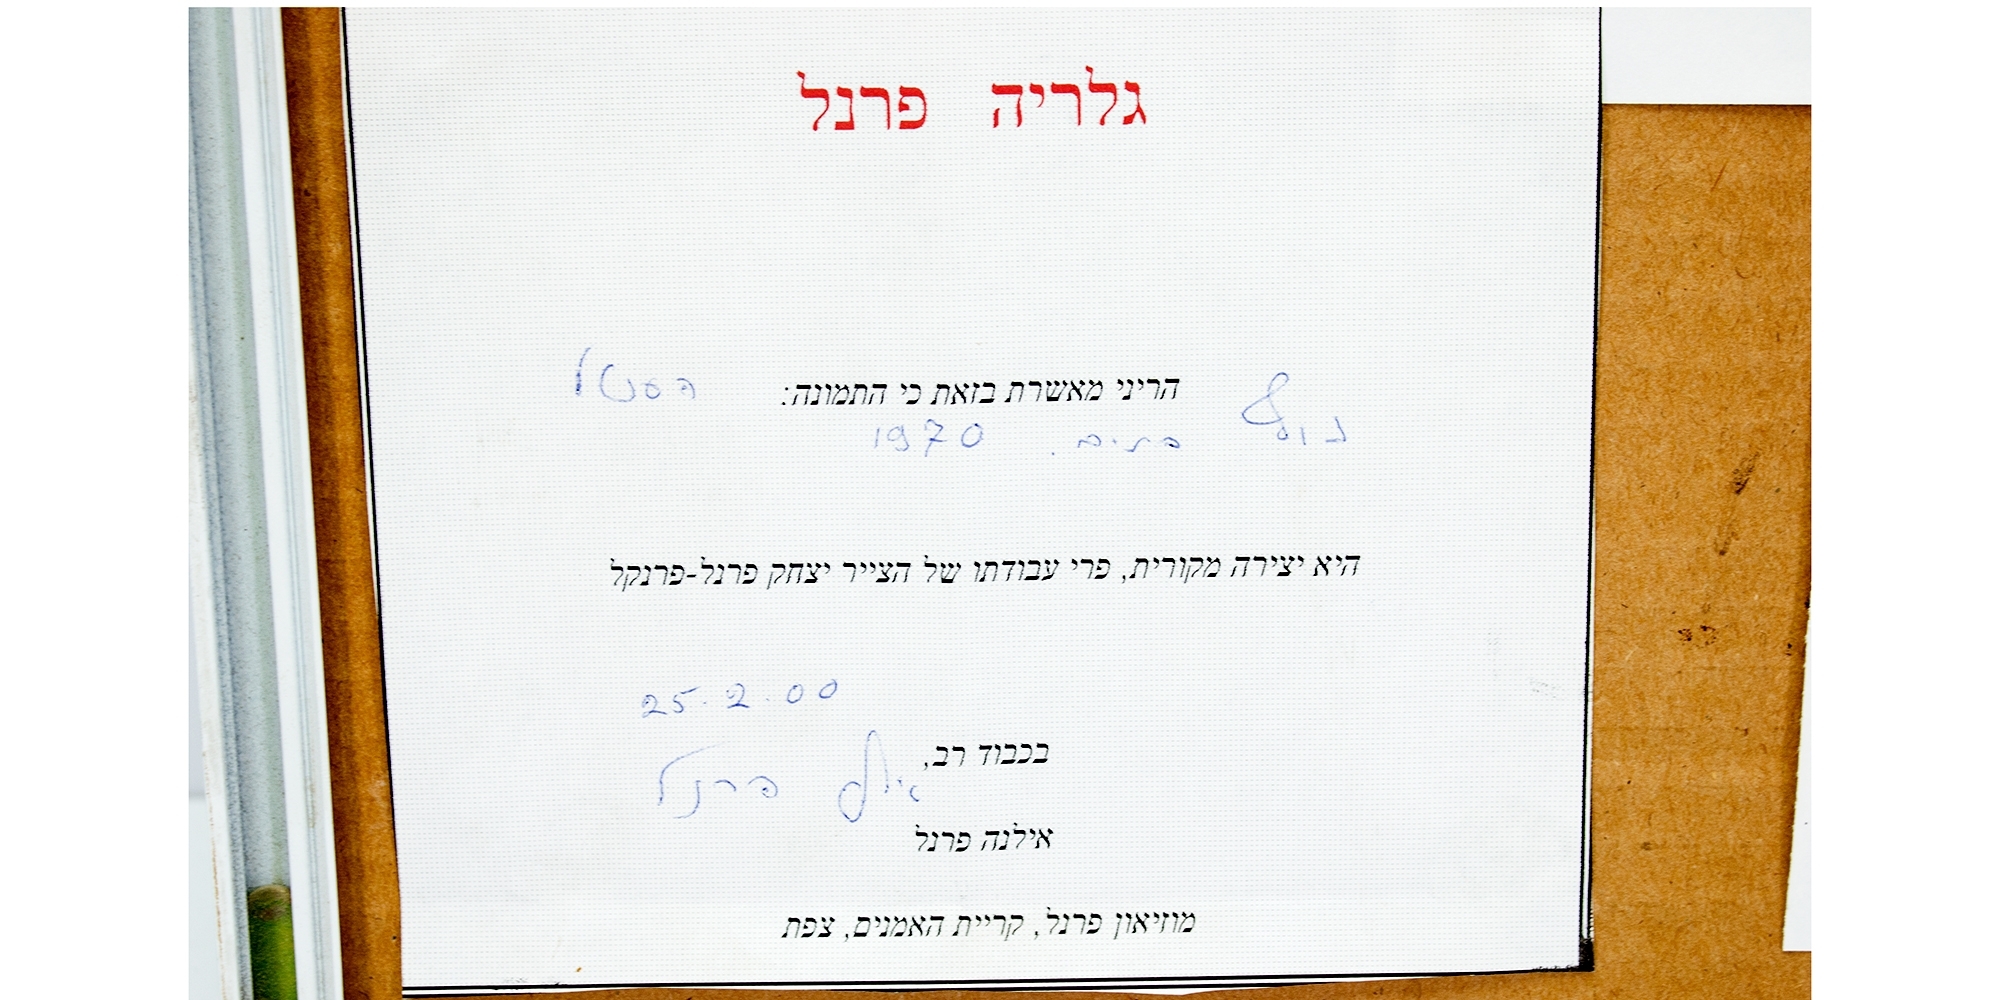 גלריה פרנל
הריני מאשרת בזאת כי התמונה: פסטל
נוף בתים. 1970
היא יצירה מקורית, פרי עבודתו של הצייר יצחק פרנל-פרנקל
25.2.00
בכבוד רב,
אילנה פרנל
אילנה פרנל
מוזיאון פרנל, קריית האמנים, צפת